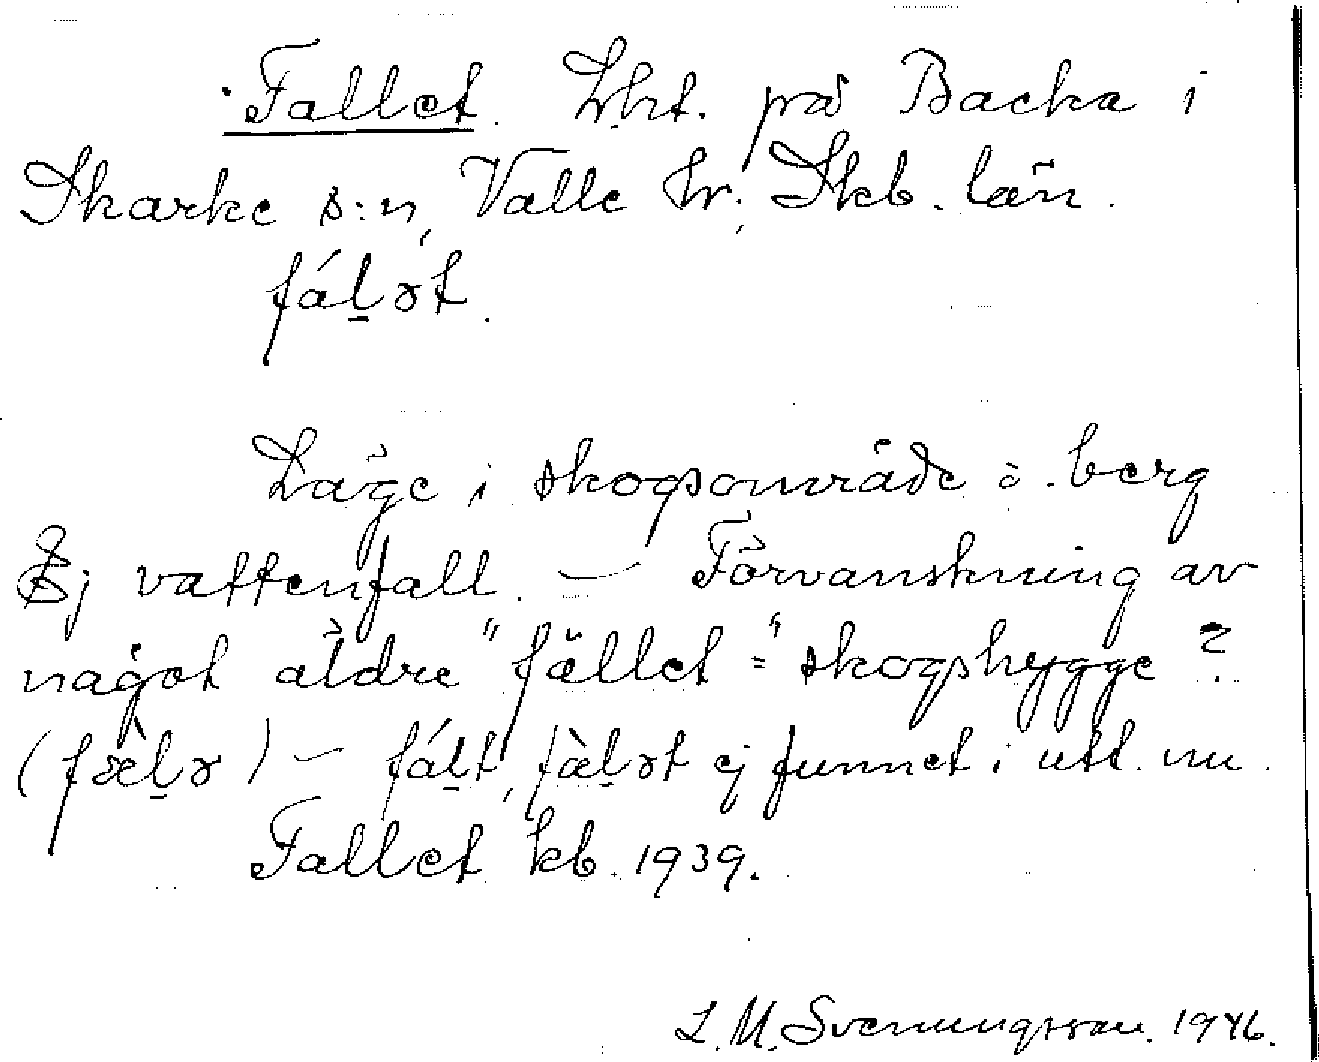 Fallet. Lht. på Backa i
Skarke s:n, Valle hr; Skb. län.
fáḻət.
Läge i skogsområde å berg
Ej vattenfall. – Förvanskning av
något äldre "fället = "skogshygge?
(fæ̀ḻə) – fáḻt, fàḻət ej funnet i utt. nu.
Fallet kb. 1939.
L. M. Svenungsson. 1946.